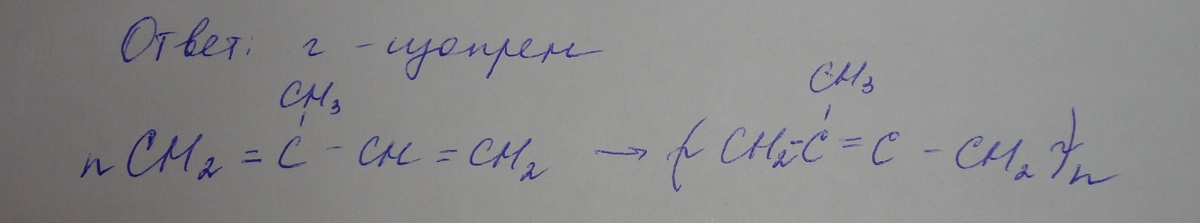 Ответ: г - изопрен
CH3 CH3
n CH2 = C - CH = CH2 → (- CH2 - C = C - CH2 -)n